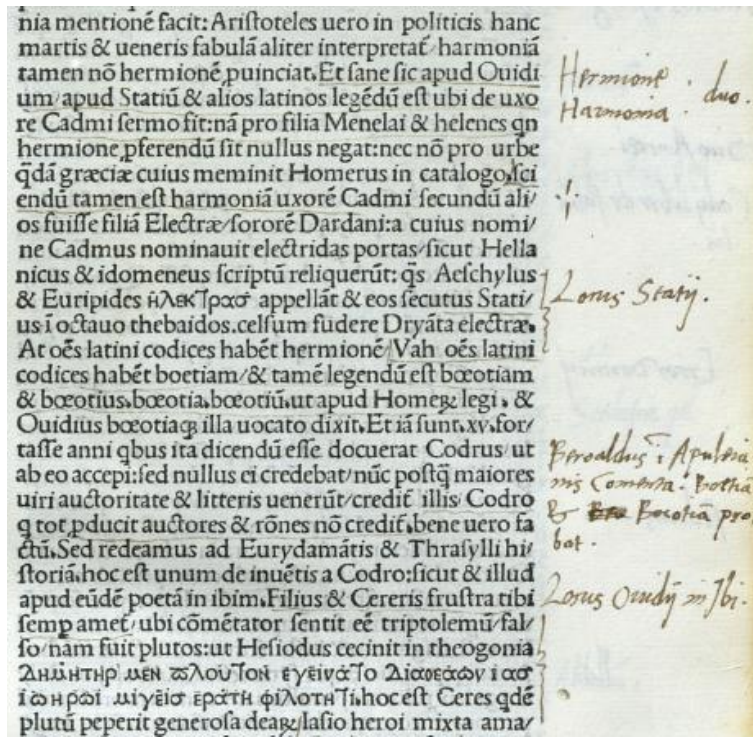 nia mentionē facit: Ariſtoteles uero in politicis hanc
martis & ueneris fabulā aliter interpretat̄/harmoniā
tamen nō hermionē ꝓuinciat. Et ſane ſic apud Ouidi
um/apud Statiū & alios latinos legēdū eſt ubi de uxo
re Cadmi ſermo ſit: nā pro filia Menelai & helenes qn
hermione ꝓferendū ſit nullus negat: nec nō pro urbe
q̄dā græciæ cuius meminit Homerus in catalogo. ſci
endū tamen est harmoniā uxorē Cadmi ſecundū ali/
os fuiſſe filiā Electræ/ſororē Dardani: a cuius nomi/
ne Cadmus nominauit electridas portas/ſicut Hella
nicus & idomeneus ſcriptū reliquerūt: q̄s Aeſchylus
& Euripides ἠλεκΤρασ appellāt & eos ſecutus Stati/
us ī octauo thebaidos. celſum fudere Dryāta electræ.
At oēs latini codices habēt hermionē/Vah oēs latini
codices habēt boetiam/& tamē legendū eſt bœotiam
& bœotius. bœotia. bœotiū. ut apud Homeꝝ legi. &
Ouidius bœotiaq; illa uocato dixit. Et iā ſunt. xv. for/
taſſe anni qbus ita dicendū eſſe docuerat Codrus/ut
ab eo accepi: ſed nullus ei credebat/nūc poſtq̄ maiores
uiri auctoritate & litteris uenerūt/credit̄ illis/Codro
q tot ꝓducit auctores & rōnes nō credit̄. bene uero fa
ctū. Sed redeamus ad Eurydamātis & Thraſylli hi/
ſtoriā. hoc eſt unum de inuētis a Codro: ſicut & illud
apud eūdē poetā in ibim. Filius & Cereris fruſtra tibi
ſemp amet̄/ubi cōmētator ſentit eē triptolemū/fal/
ſo/nam fuit plutos: ut Heſiodus cecinit in theogonia
Δημήτηρ μεν πλουΤον εγείνάΤο Δίαθεάων ιασ
ίω ηρωϊ μιγεῖσ ερατῆ φιλοτηΤι. hoc eſt Ceres qdē
plutū peperit generoſa deaꝝ Iaſio heroi mixta ama/
Hermione . duo.
Harmonia .
Locus Statij.
Beroaldus ī Apuleia
nis Comenta. Boetiā
& Bocotiā pro
bat .
Locus Ovidij in Ibi.